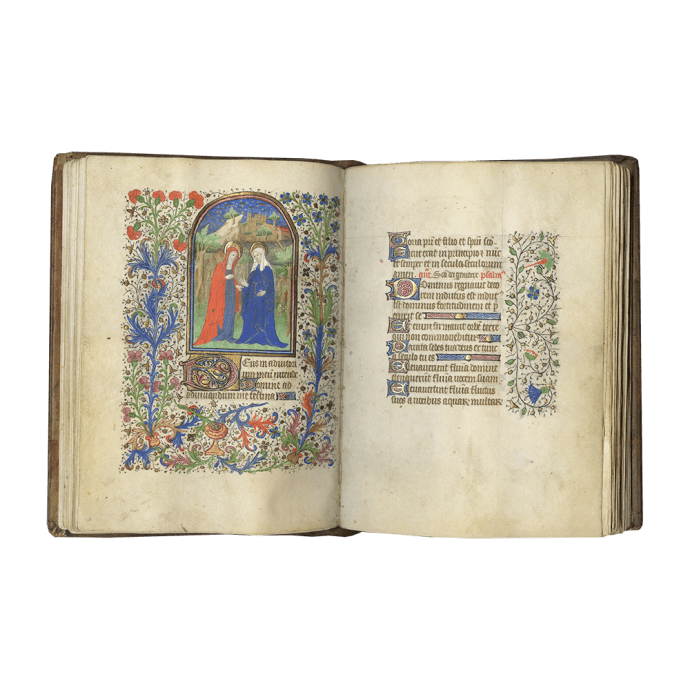 Deus in adiutori
um meu intende
Domine ad
adiuvandum me festina
Gloria pri et filio et spui sco
Sicut erat in principio et nuc
et semper et in secula seculorum
amen. Sca dei genitrix psalm
Dominus regnavit deco
rem indutus est indut
est dominus fortitudinem et p
cinxit se
Etenim firmavit orbe terre
qui non commovebitur
Parata sedes tua deus ex tunc
a seculo tu es
Elevaverunt flumina domine
elevaverut flumina vocem suam
Elevaverunt flumina fluctus
suos a vocibus aquar multar